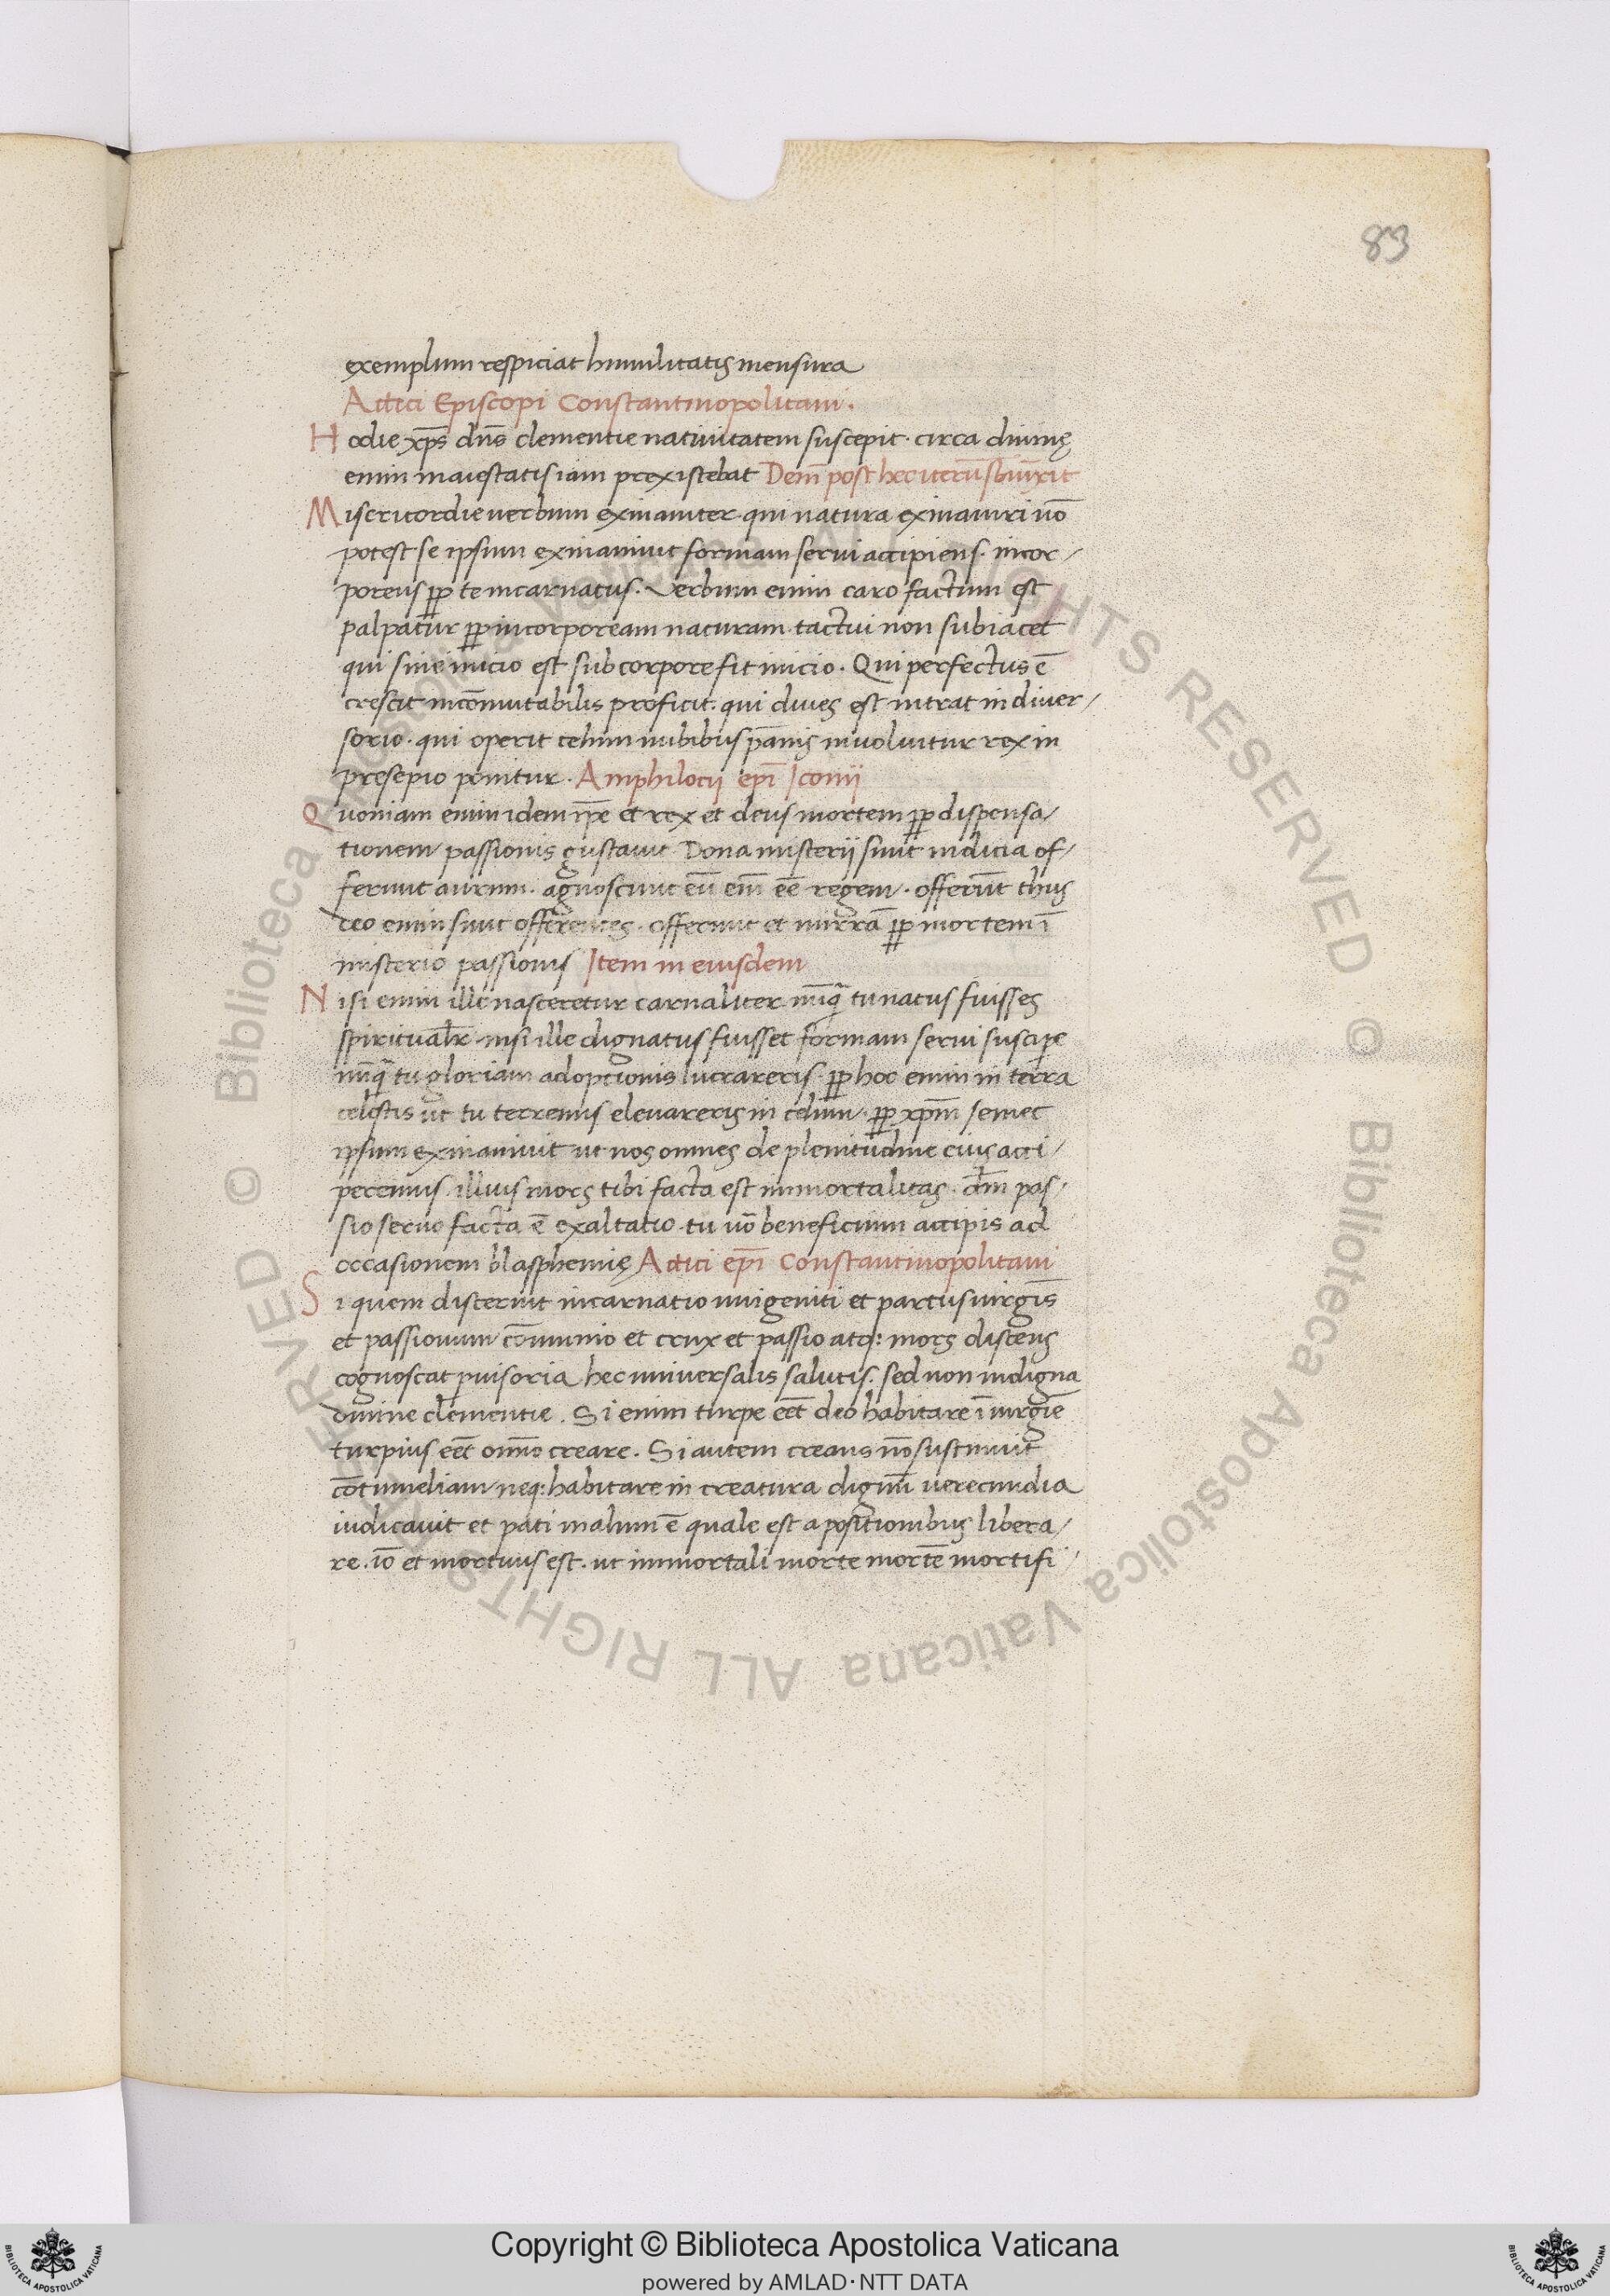 83
exemplum respiciat humilitatis mensura
Actici Episcopi Constantinopolitani.
Hodie xp̄s dn̄s clementie natiuitatem suscepit· circa diuinę
enim maiestatis iam prexistebat Dein̄ post hec iterū sbiūxit
Misericordie uerbum exinaniter· qui natura exinaniri nō
potest se ipsum exinaniuit formam serui accipiens· incor/
poreus pp te incarnatus. Verbum enim caro factum est
palpatur pp incorpoream naturam tactui non subiacet
qui sine inicio est sub corpore fit inicio. Qui perfectus ē
crescit incōmutabilis proficit: qui diues est intrat in diuer/
sorio· qui operit celum nubibus pannis inuoluitur rex in
presepio ponitur· Amphilocij epī Iconij
Quoniam enim idem rp̄e et rex et deus mortem pp dispensa/
tionem passionis gustauit Dona misterij sunt indicia of/
ferunt aurum· agnoscunt eū eīm eē regem· offerūt thus
deo enim sunt offerentes· offerunt et mirrā pp mortem ī
misterio passionis Item in eiusdem
Nisi enim ille nasceretur carnaliter nūq̄ tu natus fuisses
spiritualr̄ nisi ille dignatus fuisset formam serui suscipe
nūq̄ tu gloriam adoptionis lucrareris· pp hoc enim in terra
celestis ut tu terrenus eleuareris in celum· pp xpm̄ semet
ipsum exinaniuit ut nos omnes de plenitudine eius acci/
peremus illius mors tibi facta est immortalitas· dn̄i pas/
sio seruo facta ē exaltatio· tu uō beneficium accipis ad
occasionem blasphemię Actici epī Constantinopolitani
Si quem discernit incarnatio unigeniti et partus uirginis
et passionum cōmunio et crux et passio atq: mors discens
cognoscat puisoria hec uniuersalis salutis· sed non indigna
diuine clementie. Si enim turpe eēt deo habitare ī uirgīe
turpius eēt omīo creare. Si autem creans nō sustinuit
cōtumeliam neq: habitare in creatura dignū uerecundia
iudicauit et pati malum ē quale est a positionibus libera/
re· iō et mortuus est· ut immortali morte mortē mortifi/
© Biblioteca Apostolica Vaticana ALL RIGHTS RESERVED © Biblioteca Apostolica Vaticana ALL RIGHTS RESERVED
Copyright © Biblioteca Apostolica Vaticana
powered by AMLAD·NTT DATA
BIBLIOTECA APOSTOLICA VATICANA
BIBLIOTECA APOSTOLICA VATICANA